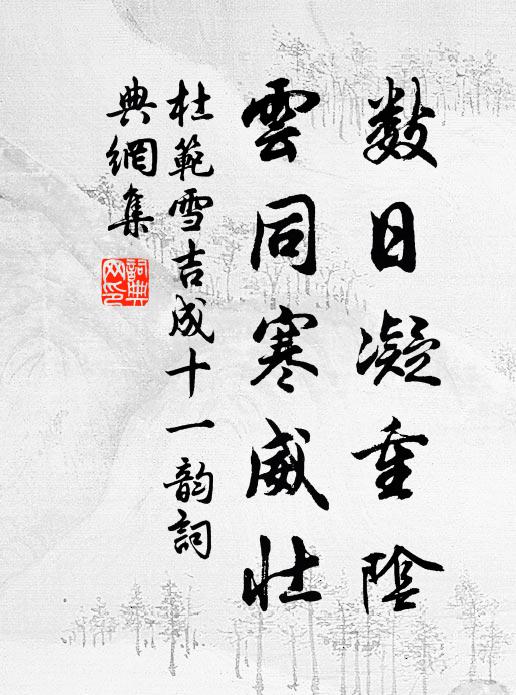 數日凝重陰
雲同寒威壯
杜範雪吉成十一韵詞
典網集
詞典網印